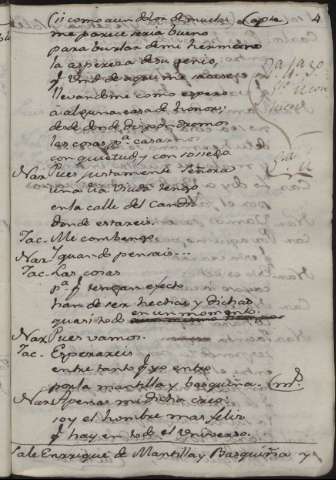 me parece seria bueno
para burlar de mi hermano
la aspereza de su genio,
llevandome como espero
a alguna casa de honor;
desde donde dispondremos
las cosas pa. casarnos
con quietud y con sosiego
Nar Pues justamente Señora
una tia viuda tengo
en la calle del Candil
donde estareis.
Jac. Me combengo.
Nar Y quando pensais...
Jac. Las cosas
pa. q tengan efecto
han de ser hechas y dichas
quasi todo en un momento.
Nar Pues vamos.
Jac. Esperareis
entre tanto q yo entro
por la mantilla y basquiña.
Nar Apenas mi dicha creo:
soy el hombre mas feliz
q hay en todo el Universo.
Sale Enrrique de Mantilla y Basquiña y
4